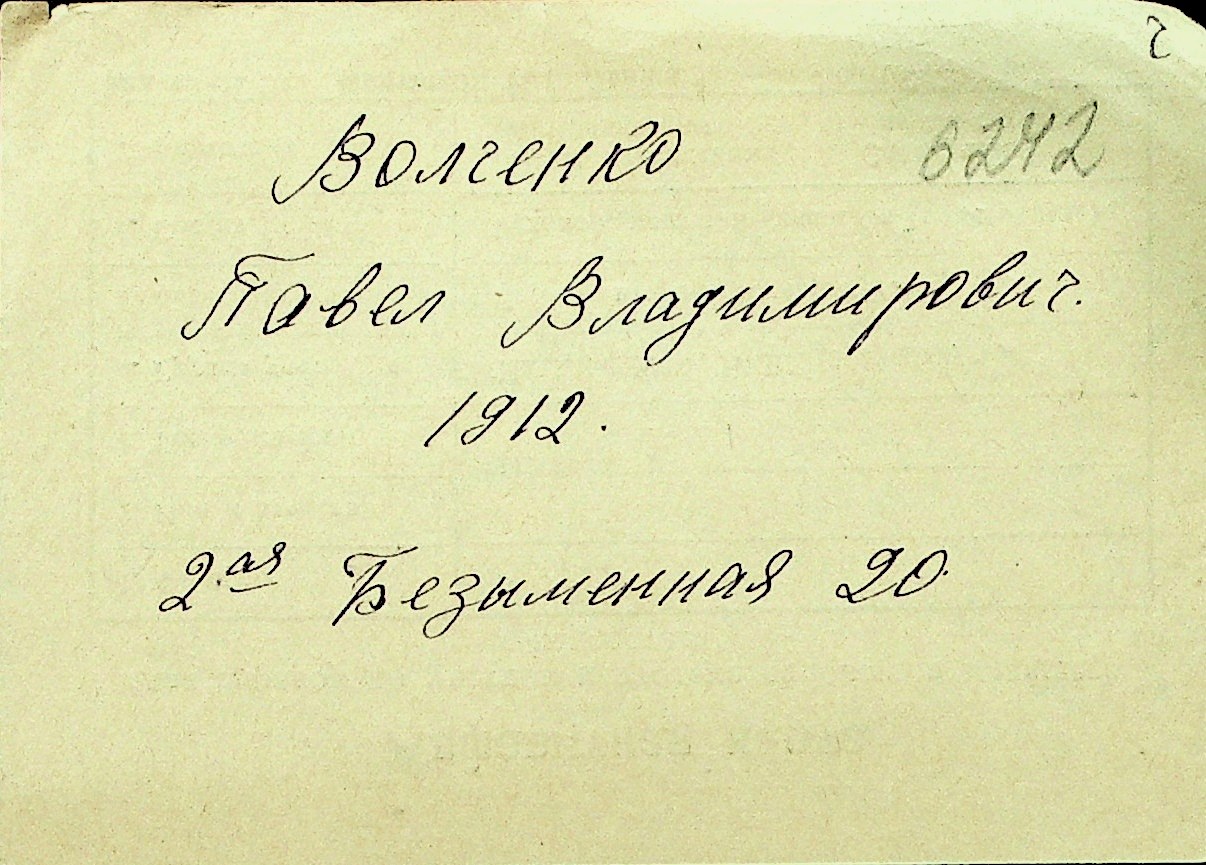 Волченко 6242
Павел Владимирович.
1912.
2ая Безыменная 20